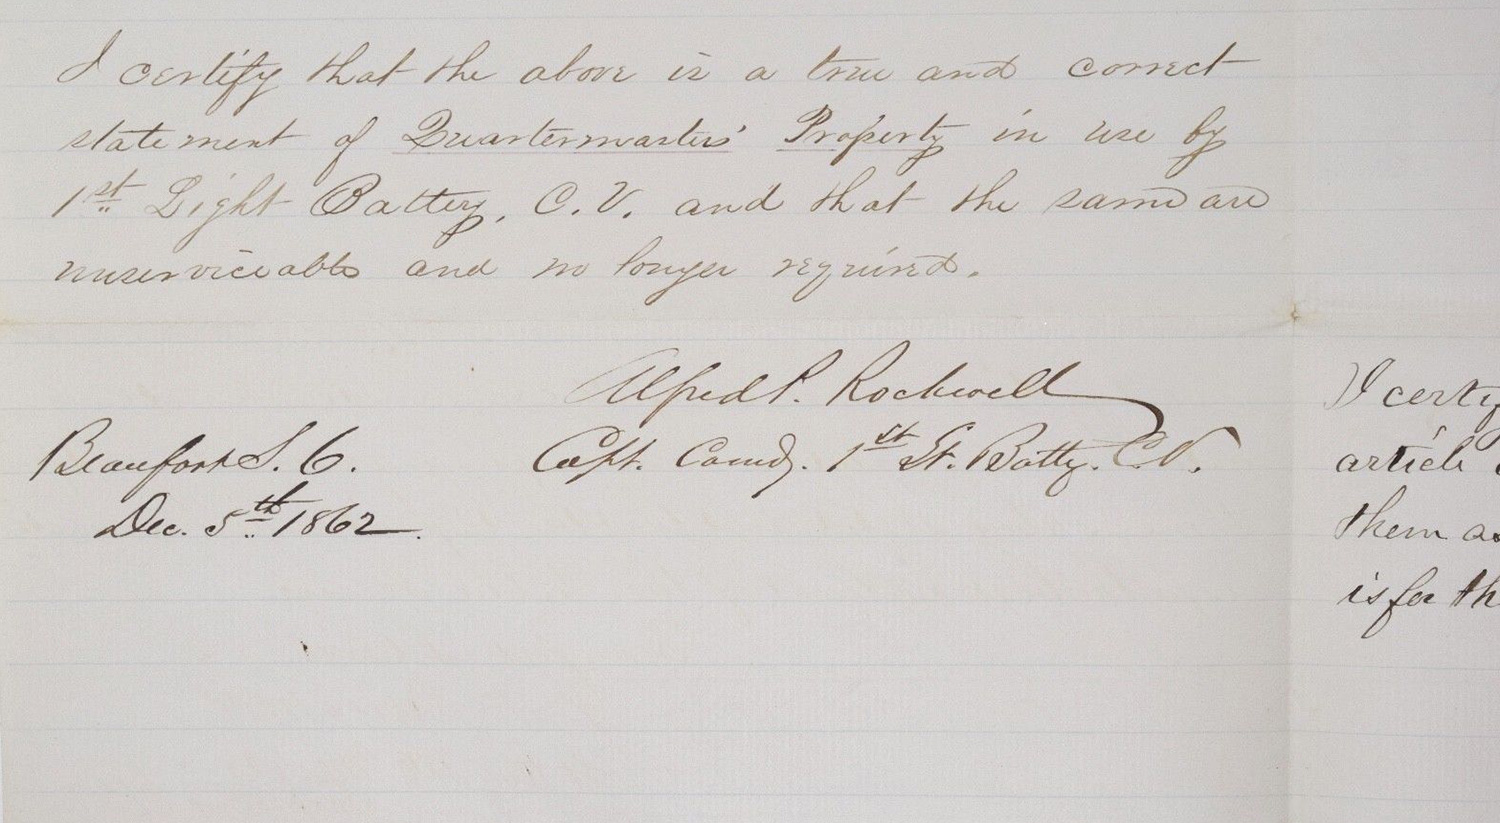 I certify that the above is a true and correct
statement of Quartermasters' Property in use by
1st Light Battery, C. V. and that the same are
unserviceable and no longer required.
Alfred P. Rockwell
Capt. Comdg. 1st Lt. Batty. C. V.
Beaufort S. C.
Dec. 5th 1862.
I certify
article
them as
is for th